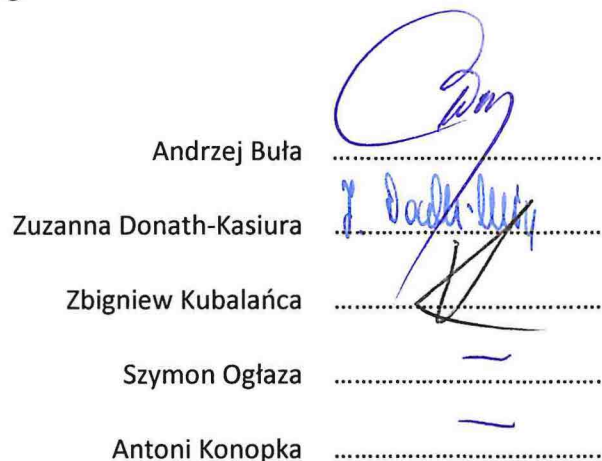 Andrzej Buła ..............................
Zuzanna Donath-Kasiura ..............................
Zbigniew Kubalańca ..............................
Szymon Ogłaza .............................. —
Antoni Konopka .............................. —